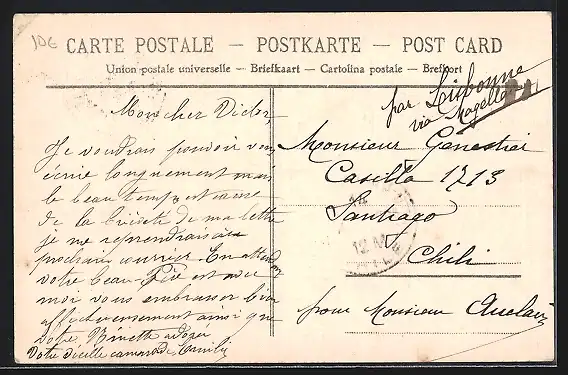 106
CARTE POSTALE — POSTKARTE — POST CARD
Union postale universelle — Briefkaart — Cartolina postale — Brefkort
par Lisbonne
via Magellan
Mon cher Victor,
Je voudrais pouvoir vous
écrire longuement mais
le beau temps est cause
de la brièveté de ma lettre
je me reprendrai au
prochain courrier. En attendant
votre beau-Père est avec
moi vous embrasser bien
affectueusement ainsi que
votre Ninette adorée
Votre vieille camarade, Emily
Monsieur Genestier
Casilla 1713
Santiago
Chili
pour Monsieur Auclair
12